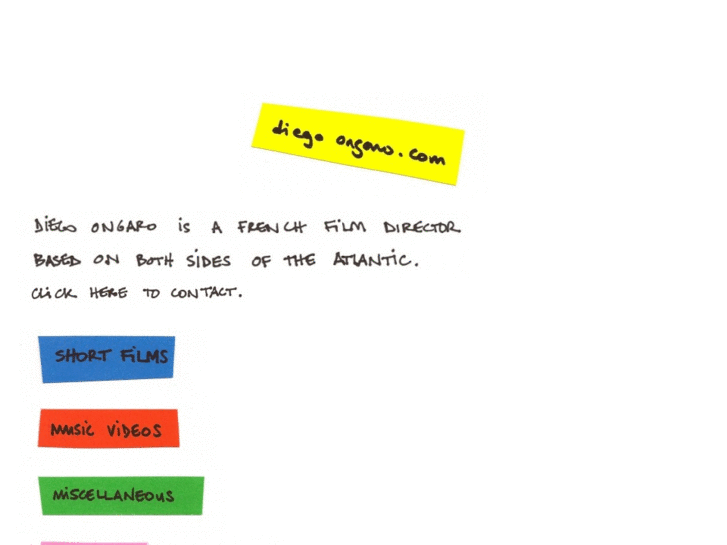 diego ongaro.com
DIEGO ONGARO is A FRENCH FILM DIRECTOR
BASED ON BOTH SIDES OF THE ATLANTIC.
CLICK HERE TO CONTACT.
SHORT FILMS
MUSIC VIDEOS
MISCELLANEOUS